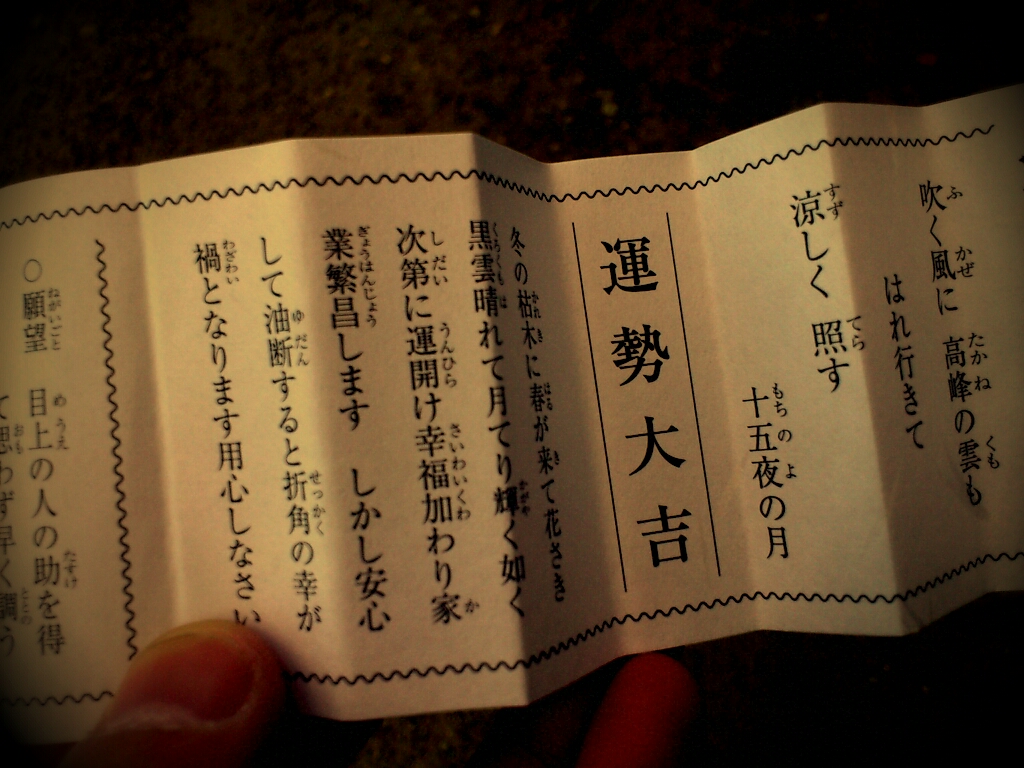 吹く風に 高峰の雲も
はれ行きて
涼しく 照す
十五夜の月
運勢大吉
冬の枯木に春が来て花さき
黒雲晴れて月てり輝く如く
次第に運開け幸福加わり家
業繁昌します しかし安心
して油断すると折角の幸が
禍となります用心しなさい
○願望 目上の人の助を得
て思わず早く調う